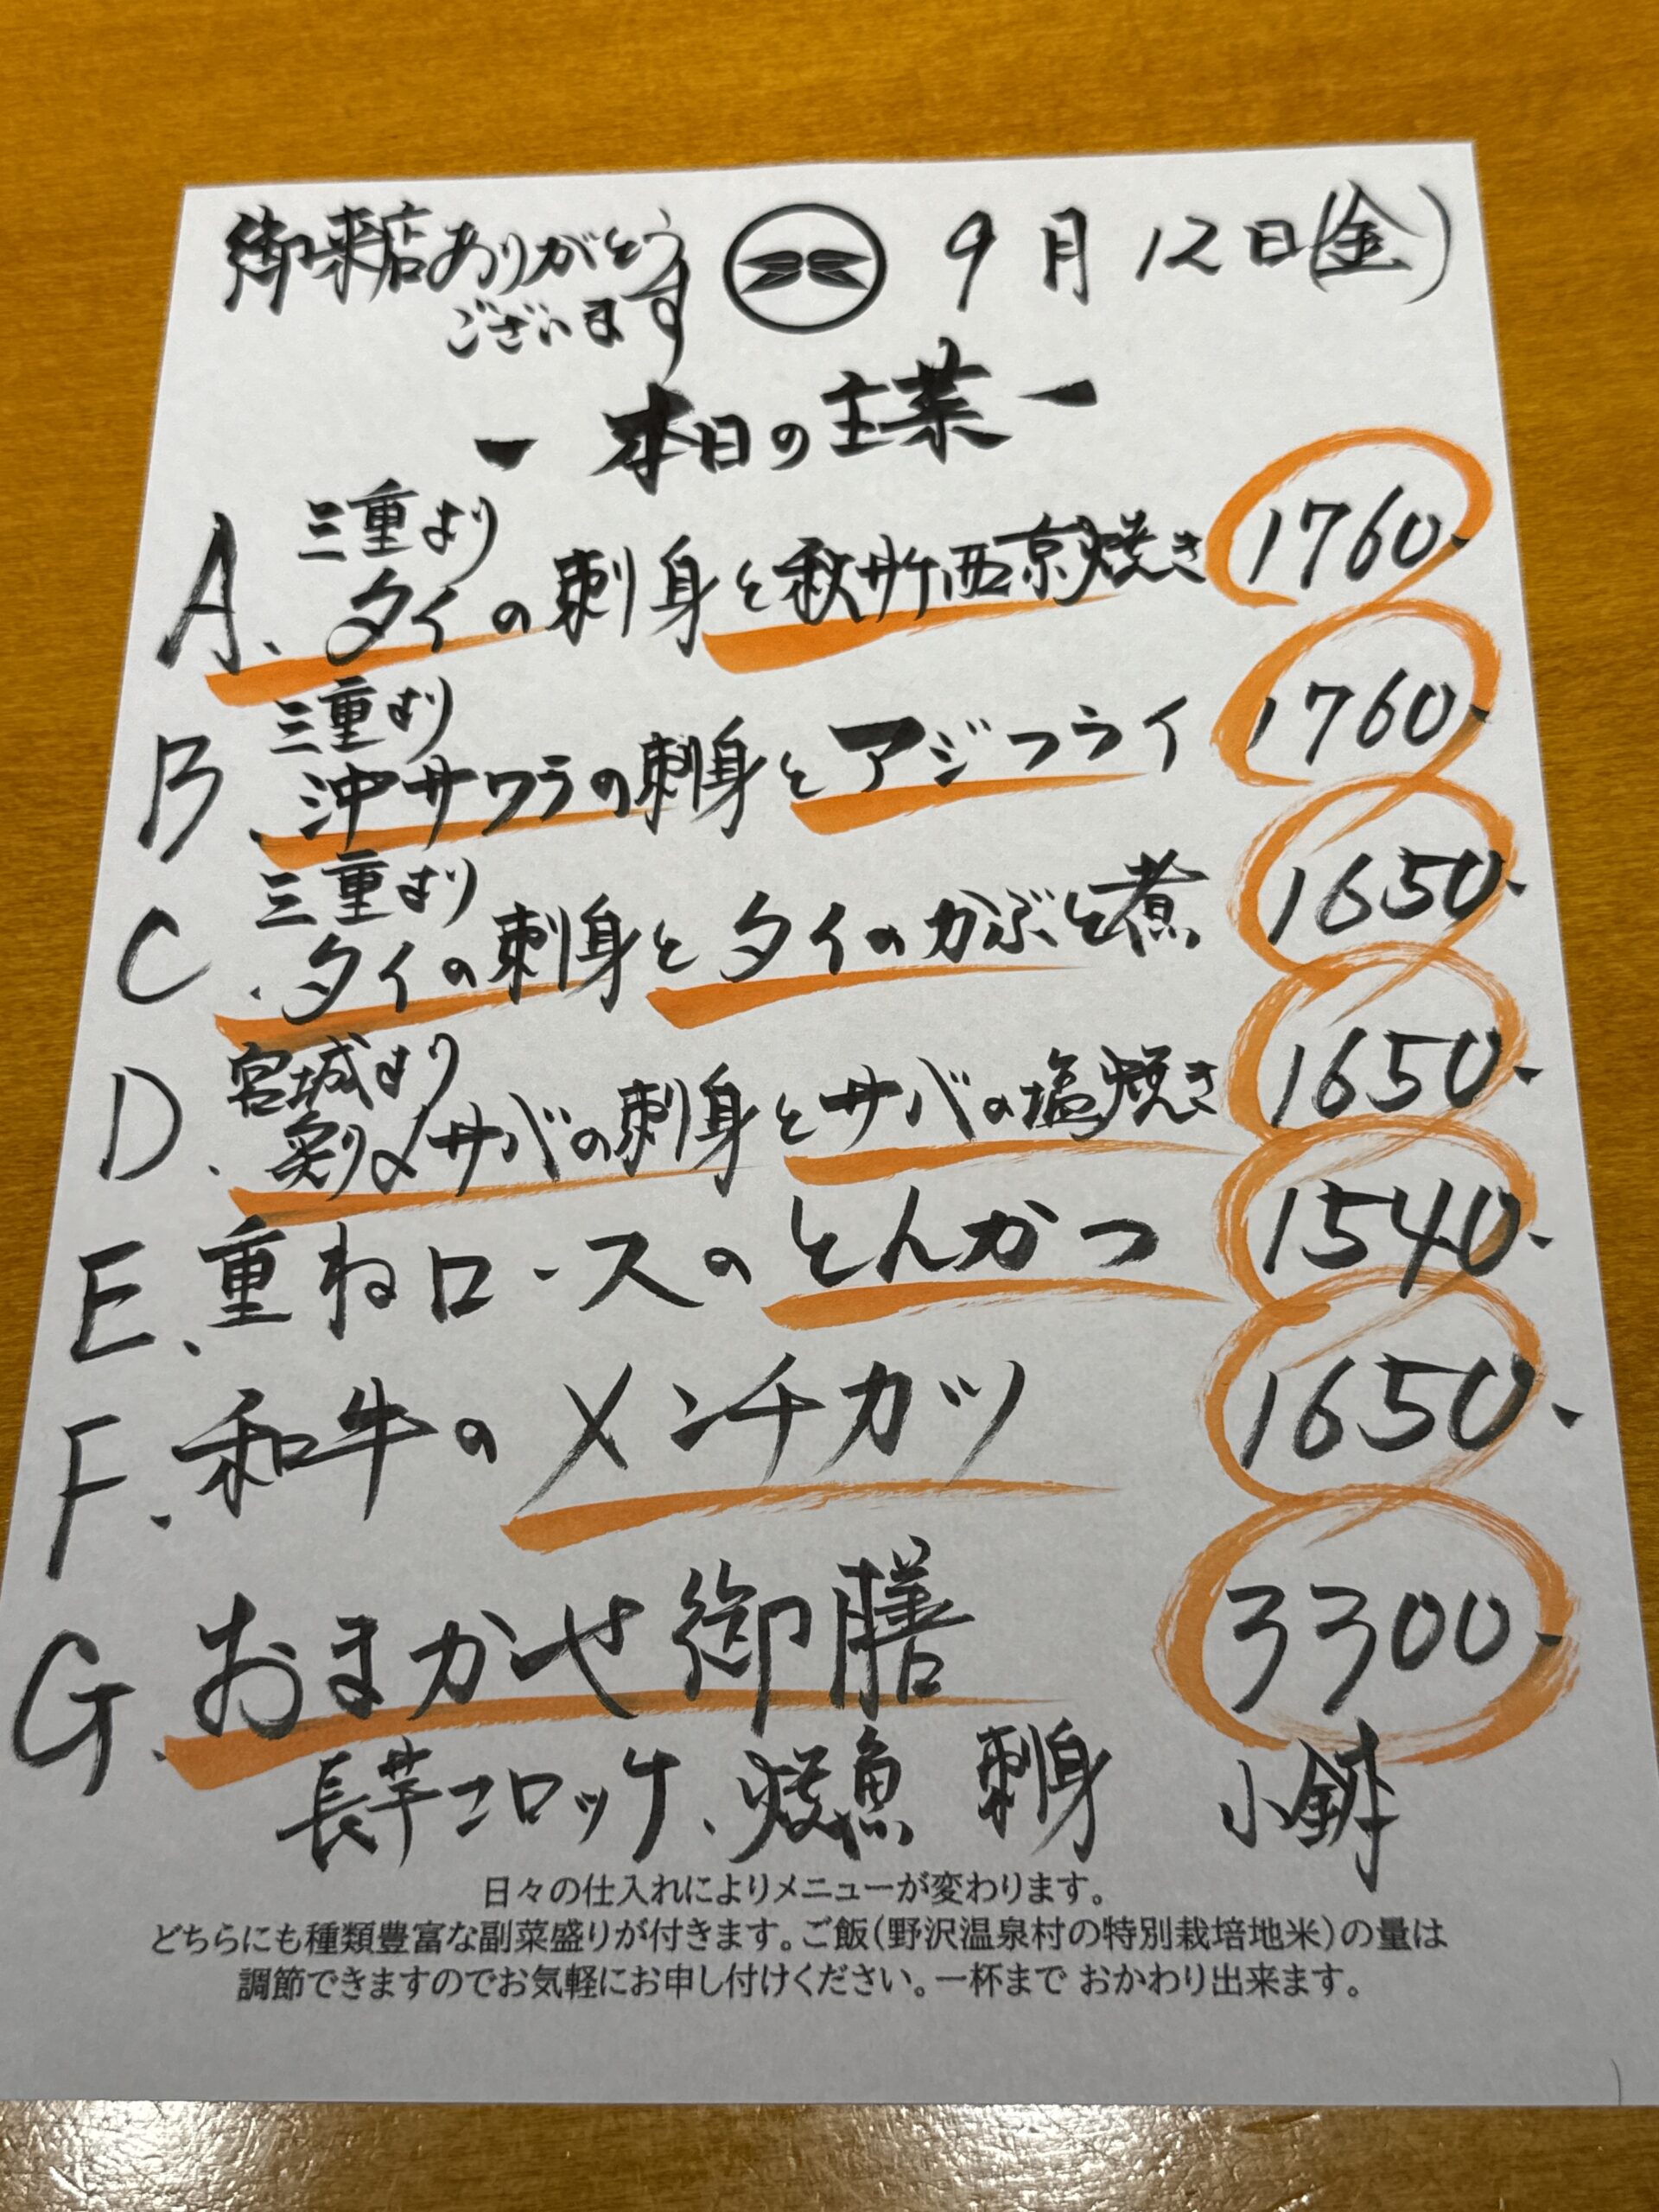 御来店ありがとう
ございます
9月12日(金)
- 本日の主菜 -
三重より
A、タイの刺身と秋サケ西京焼き 1760、
三重より
B、沖サワラの刺身とアジフライ 1760、
三重より
C、タイの刺身とタイのかぶと煮 1650、
宮城より
D、炙り〆サバの刺身とサバの塩焼き 1650、
E、重ねロースのとんかつ 1540、
F、和牛のメンチカツ 1650、
G、おまかせ御膳 3300、
長芋コロッケ、焼魚 刺身 小鉢
日々の仕入れによりメニューが変わります。
どちらにも種類豊富な副菜盛りが付きます。ご飯(野沢温泉村の特別栽培地米)の量は
調節できますのでお気軽にお申し付けください。一杯まで おかわり出来ます。